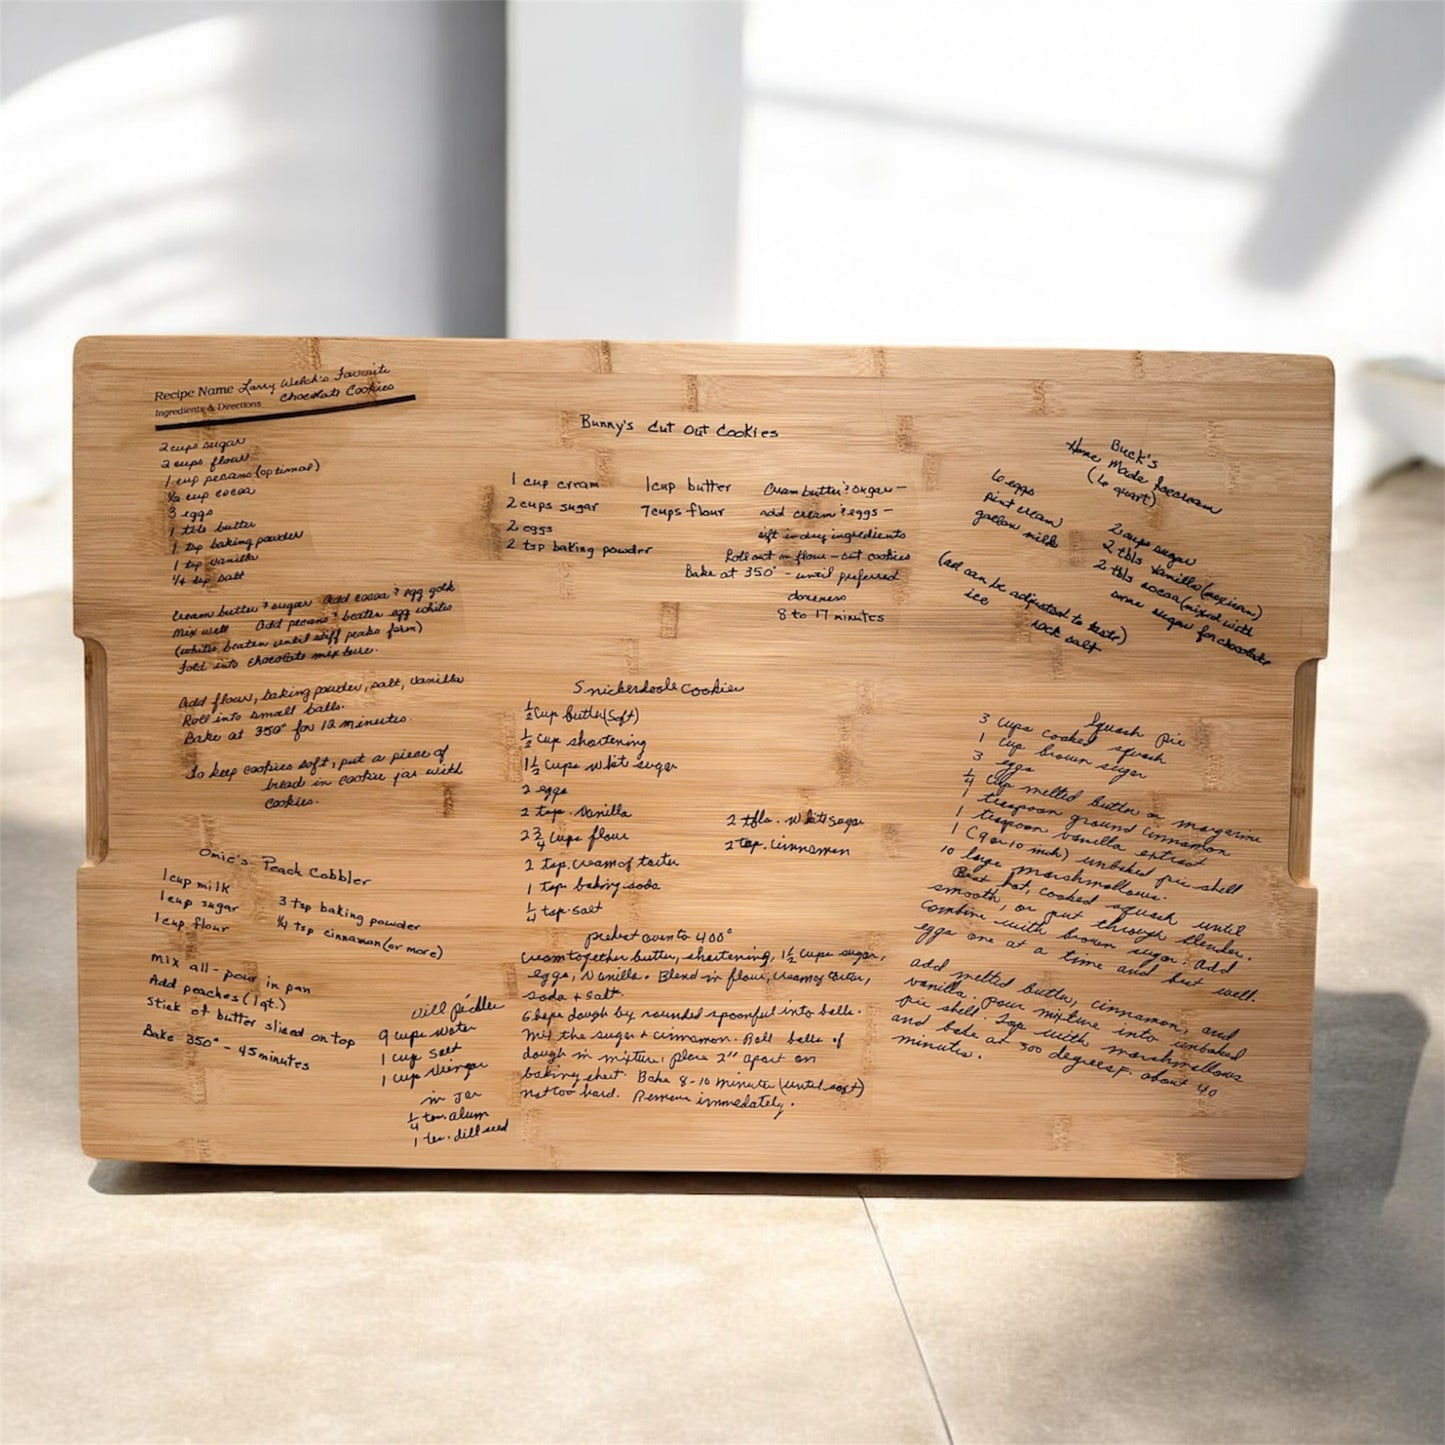 Recipe Name Larry Welch's Favorite
Chocolate Cookies
Ingredients & Directions
2 cups sugar
2 cups flour
1 cup pecans (optional)
1/2 cup cocoa
3 eggs
1 tbls butter
1 tsp baking powder
1 tsp vanilla
1/4 tsp salt
Cream butter & sugar Add cocoa & egg yolk
Mix well Add pecans & beaten egg whites
(whites beaten until stiff peaks form)
Fold into chocolate mixture.
Add flour, baking powder, salt, vanilla
Roll into small balls.
Bake at 350° for 12 minutes.
To keep cookies soft, put a piece of
bread in cookie jar with
cookies.
Omie's Peach Cobbler
1 cup milk
1 cup sugar
1 cup flour
3 tsp baking powder
1/4 tsp cinnamon (or more)
mix all - pour in pan
Add peaches (1 qt.)
stick of butter sliced on top
Bake 350° - 45 minutes
Dill pickles
9 cups water
1 cup salt
1 cup vinegar
in jar
1/4 tea. alum
1 tea. dill seed
Bunny's Cut Out Cookies
1 cup cream
2 cups sugar
2 eggs
2 tsp baking powder
1 cup butter
7 cups flour
Cream butter & sugar -
add cream & eggs -
sift in dry ingredients
Roll out on flour - cut cookies
Bake at 350° - until preferred
doneness
8 to 17 minutes
Snickerdoole Cookies
1/2 cup butter (soft)
1/2 cup shortening
1 1/2 cups whit sugar
2 eggs
2 tsp. vanilla
2 3/4 cups flour
2 tsp. cream of tarter
1 tsp baking soda
1/4 tsp. salt
2 tbls. whit sugar
2 tsp. cinnamon
preheat oven to 400°
Cream together butter, shortening, 1 1/2 cups sugar,
eggs, vanilla. Blend in flour, cream of tarter,
soda + salt.
Shape dough by rounded spoonful into balls.
Mix the sugar + cinnamon. Roll balls of
dough in mixture, place 2" apart on
baking sheet. Bake 8-10 minutes (until set)
not too hard. Remove immedately.
Buck's
Home Made Icecream
(6 quart)
6 eggs
pint cream
gallon milk
2 cups sugar
2 tbls vanilla (mexican)
2 tbls cocoa (mixed with
some sugar for chocolate
(all can be adjusted to taste)
ice
rock salt
Squash Pie
3 cups cooked squash
1 cup brown sugar
3 eggs
1/4 cup melted butter or margarine
1 teaspoon ground cinnamon
1 teaspoon vanilla extract
1 (9 or 10 inch) unbaked pie shell
10 large marshmallows.
Beat hot, cooked squash until
smooth, or put through blender.
Combine with brown sugar. Add
eggs one at a time and beat well.
Add melted butter, cinnamon, and
vanilla. Pour mixture into unbaked
pie shell. Top with marshmallows
and bake at 300 degrees F. about 40
minutes.